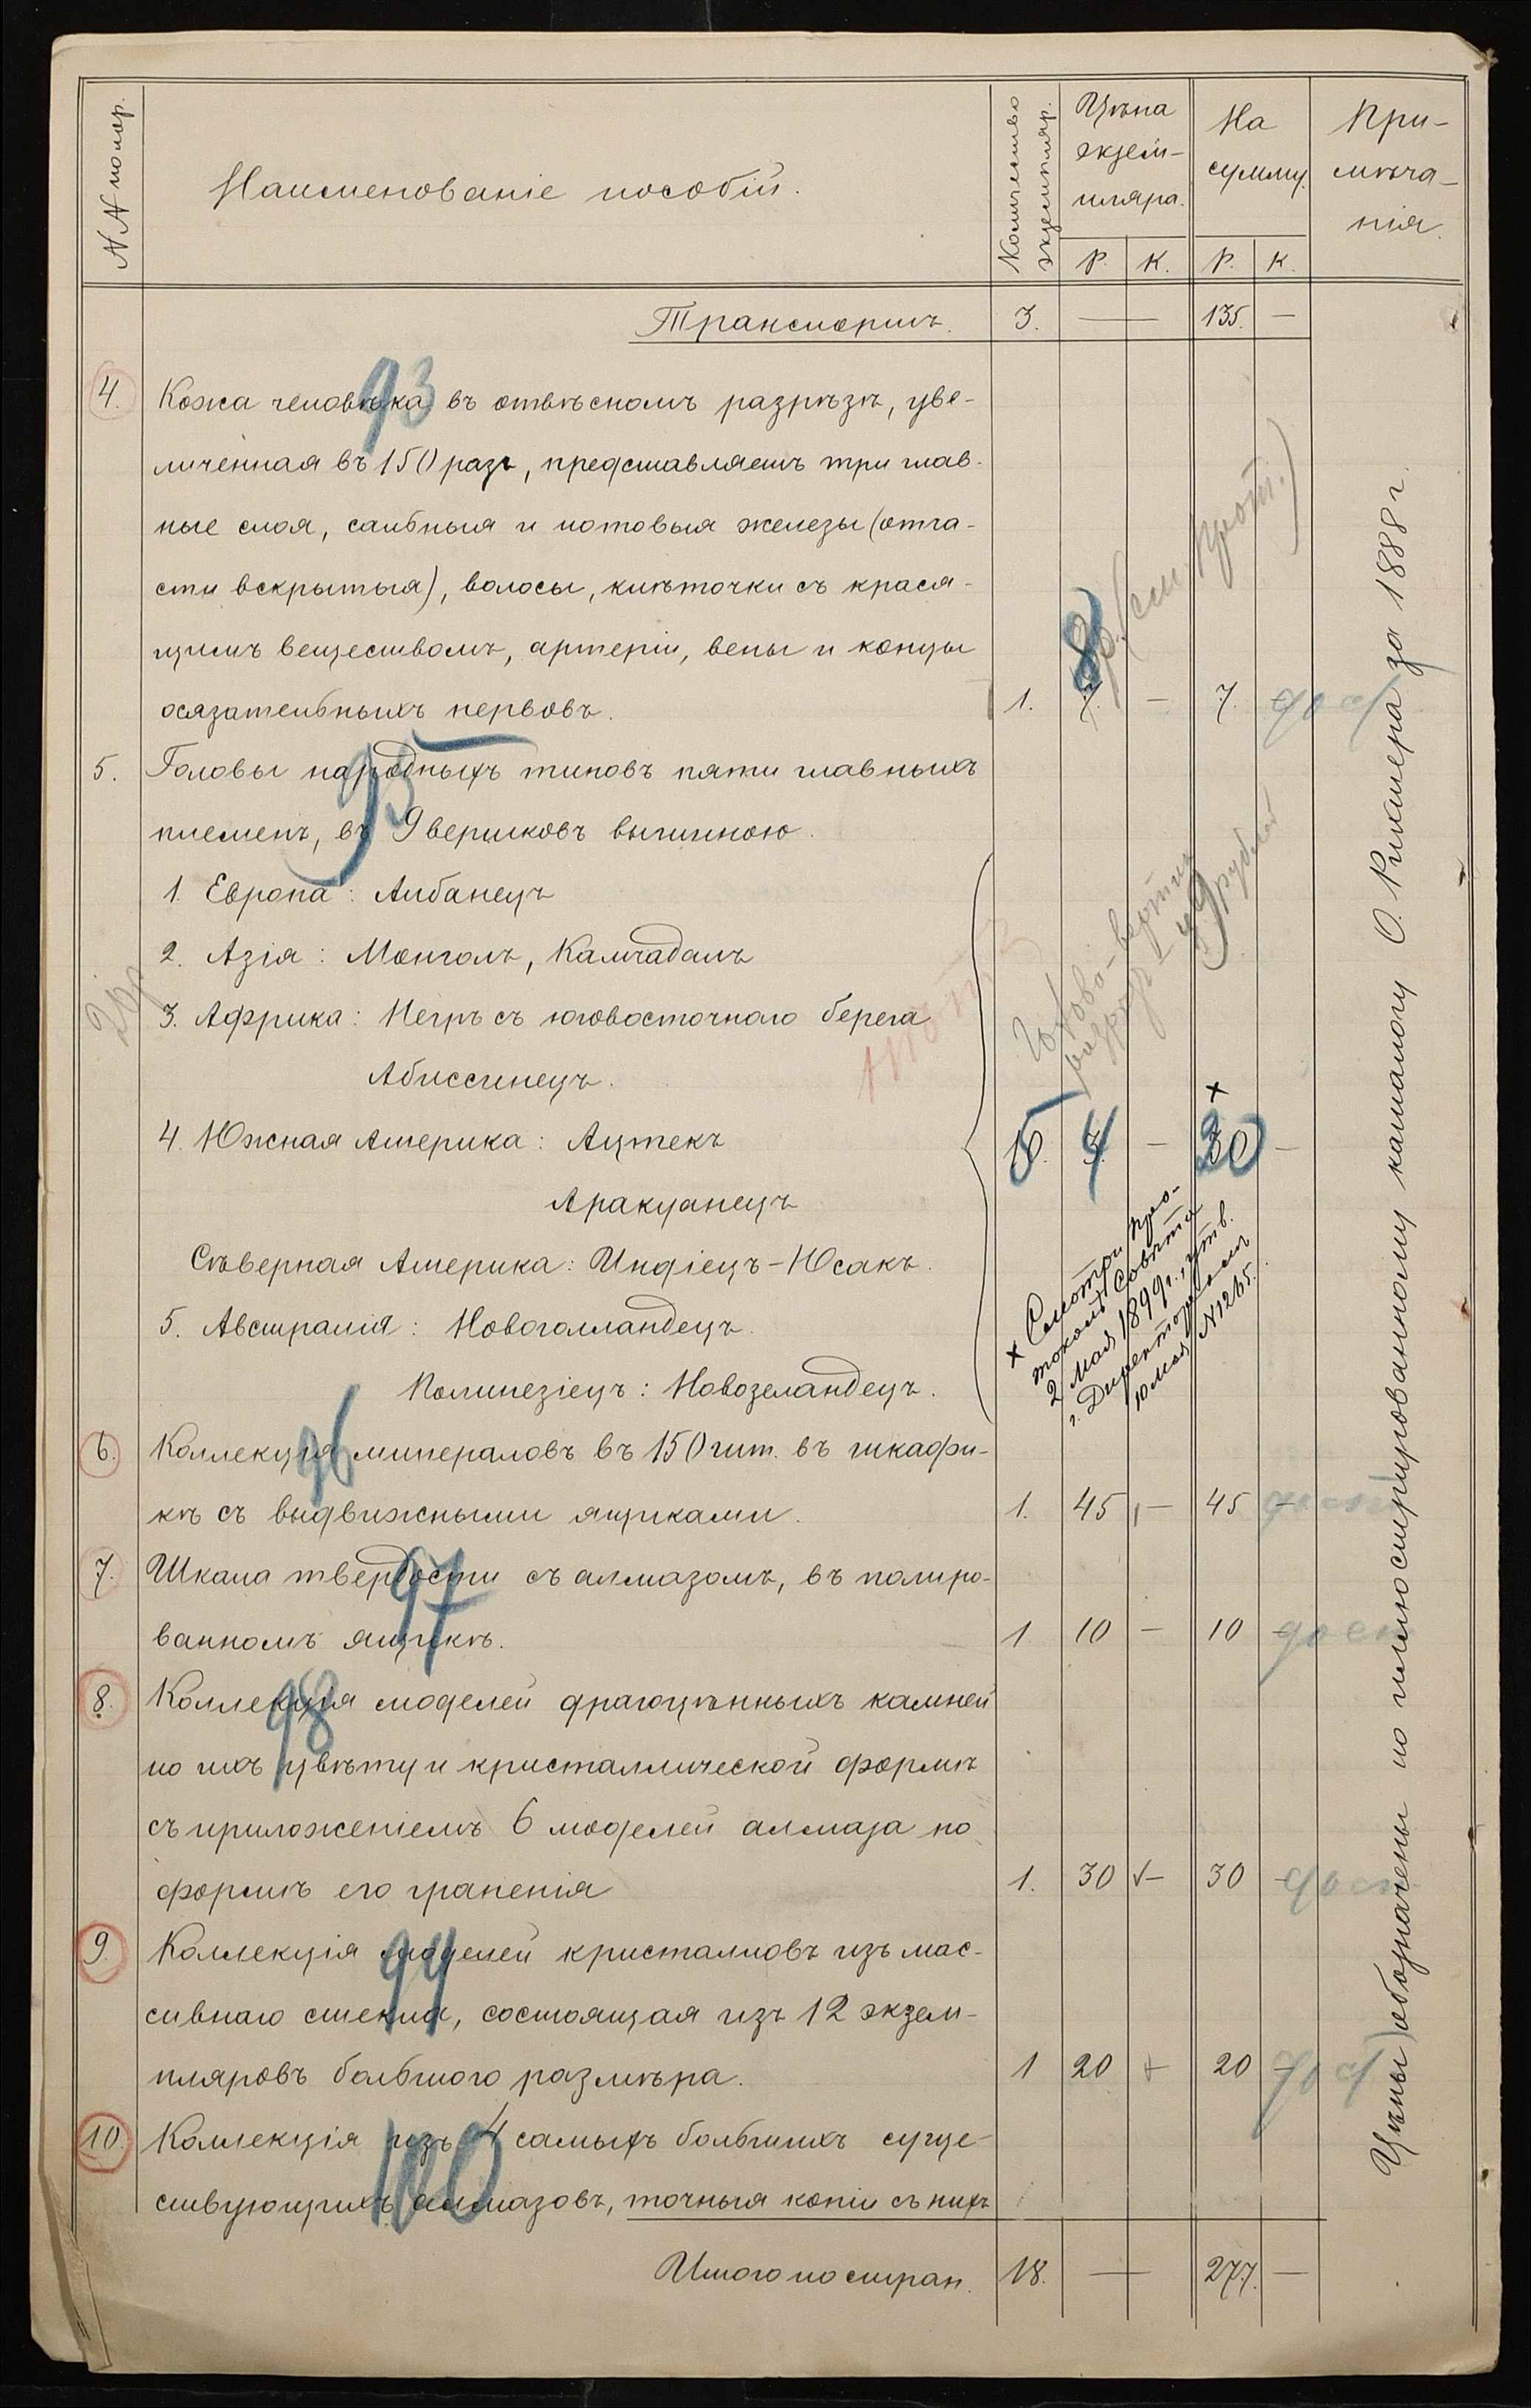 NN по пор.
Наименованіе пособій.
Количество
экземпляр.
Цѣна
экзем-
пляра.
На
сумму.
При-
мѣча-
нія.
Р. К. Р. К.
Транспортъ. 3. — 135. —
93
4. Кожа человѣка въ отвѣсномъ разрѣзѣ, уве-
личенная въ 150 разъ, представляетъ три глав-
ные слоя, сальныя и потовыя железы (отча-
сти вскрытыя), волосы, клѣточки съ крася-
щимъ веществомъ, артеріи, вены и концы
осязательныхъ нервовъ. 1. 7. — 7. дост
8
8 р. (см. прот.)
5. Головы народныхъ типовъ пяти главныхъ
95
племенъ, въ 9 вершковъ вышиною.
1. Европа: Албанецъ
2. Азія: Монголъ, Камчадалъ
3. Африка: Негръ съ юговосточнаго берега
Абиссинецъ.
4. Южная Америка: Ацтекъ
5 4 — 30 —
Араканецъ
Сѣверная Америка: Индіецъ-Юсакъ.
5. Австралія: Новоголландецъ.
Полинезіецъ: Новозеландецъ.
× Смотри про-
токолъ Совѣта
2 Мая 1899 г., утв.
г. Директоромъ
10 мая N 1265.
96
6. Коллекція минераловъ въ 150 шт. въ шкафи-
кѣ съ выдвижными ящиками. 1. 45 — 45 —
7. Шкала твердости съ алмазомъ, въ полиро-
97
ванномъ ящикѣ. 1 10 — 10 — дост
8. Коллекція моделей драгоцѣнныхъ камней
98
по ихъ цвѣту и кристаллической формѣ
съ приложеніемъ 6 моделей алмаза по
формѣ его граненія 1. 30 — 30 — дост
9. Коллекція моделей кристалловъ изъ мас-
99
сивнаго стекла, состоящая изъ 12 экзем-
пляровъ большого размѣра. 1 20 — 20 — дост
10. Коллекція изъ 4 самыхъ большихъ суще-
100
ствующихъ алмазовъ, точныя копіи съ нихъ
Итого по стран. 18. — 277. —
Цѣны обозначены по иллюстрированному каталогу О. Рихтера за 1888 г.